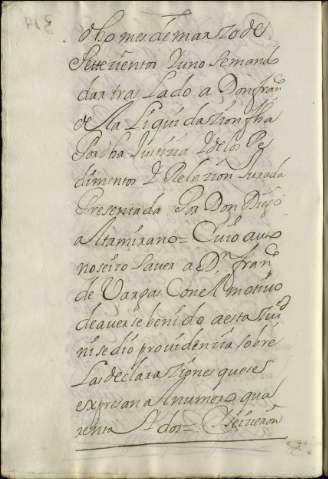 ocho mes de marzo de
Setesientos Y uno se mando
dar tras lado a Don fran
de la Liqui dazion fha
Por dha Justizia Y de los Pe
dimentos Y Relazion Jurada
Presentada Por Don Diego
Altamirano = Cuio auto
no se izo Saver a Dn. fran
de Vargas Con el motivo
de averse benido a esta Cui
ni se dio providenzia sobre
Las declaraziones que se
expresan al numero qua
renta Y dos =